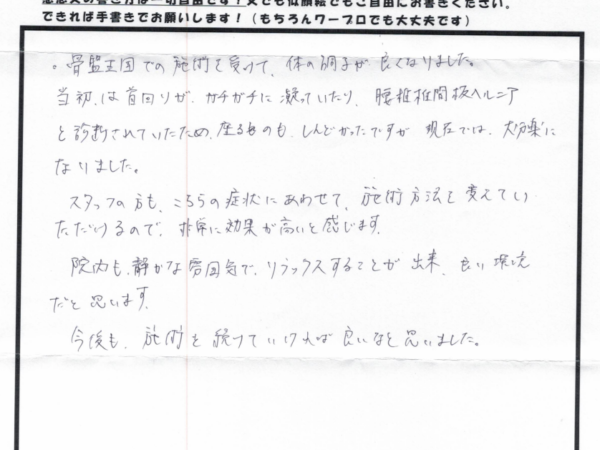 感想文の書き方は一切自由です！文でも似顔絵でもご自由にお書きください。
できれば手書きでお願いします！（もちろんワープロでも大丈夫です）
。骨盤王国での施術を受けて、体の調子が良くなりました。
当初は首回りが、ガチガチに凝っていたり、腰椎椎間板ヘルニア
と診断されていたため、座るものも、しんどかったですが現在では、大分楽に
なりました。
スタッフの方も、こちらの症状にあわせて、施術方法を変えてい
ただけるので、非常に効果が高いと感じます。
院内も、静かな雰囲気で、リラックスすることが出来、良い環境
だと思います。
今後も、施術を続けていければ良いなと思いました。